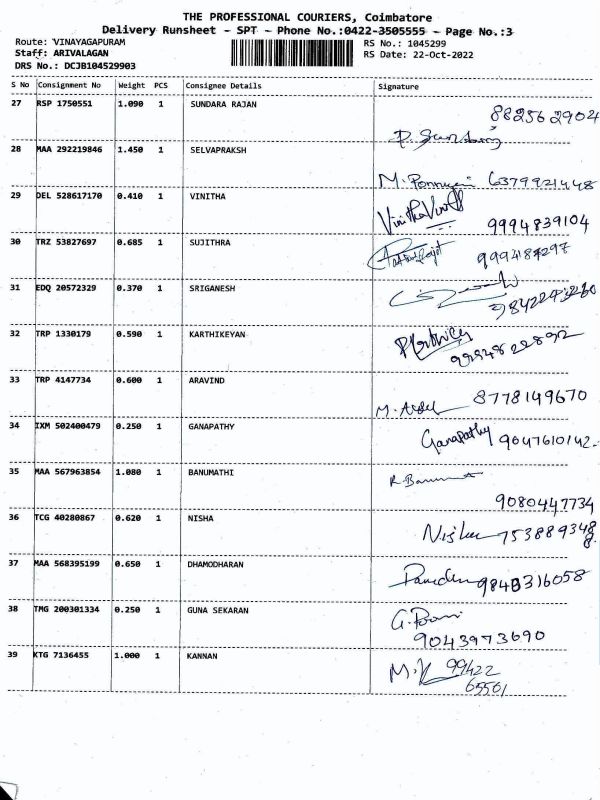 THE PROFESSIONAL COURIERS, Coimbatore
Delivery Runsheet - SPT - Phone No.:0422-3505555 - Page No.:3
Route: VINAYAGAPURAM RS No.: 1045299
Staff: ARIVALAGAN RS Date: 22-Oct-2022
DRS No.: DCJB104529903
S No Consignment No Weight PCS Consignee Details Signature
27 RSP 1750551 1.090 1 SUNDARA RAJAN
882562904
28 MAA 292219846 1.450 1 SELVAPRAKSH
6379921448
29 DEL 528617170 0.410 1 VINITHA
Vinitha
9994839104
30 TRZ 53827697 0.685 1 SUJITHRA
9994187297
31 EDQ 20572329 0.370 1 SRIGANESH
32 TRP 1330179 0.590 1 KARTHIKEYAN
33 TRP 4147734 0.600 1 ARAVIND
8778149670
34 IXM 502400479 0.250 1 GANAPATHY
Ganapathy 9047610142
35 MAA 567963854 1.080 1 BANUMATHI
9080447734
36 TCG 40280867 0.620 1 NISHA
37 MAA 568395199 0.650 1 DHAMODHARAN
38 TMG 200301334 0.250 1 GUNA SEKARAN
9043973690
39 KTG 7136455 1.000 1 KANNAN
99422
65501